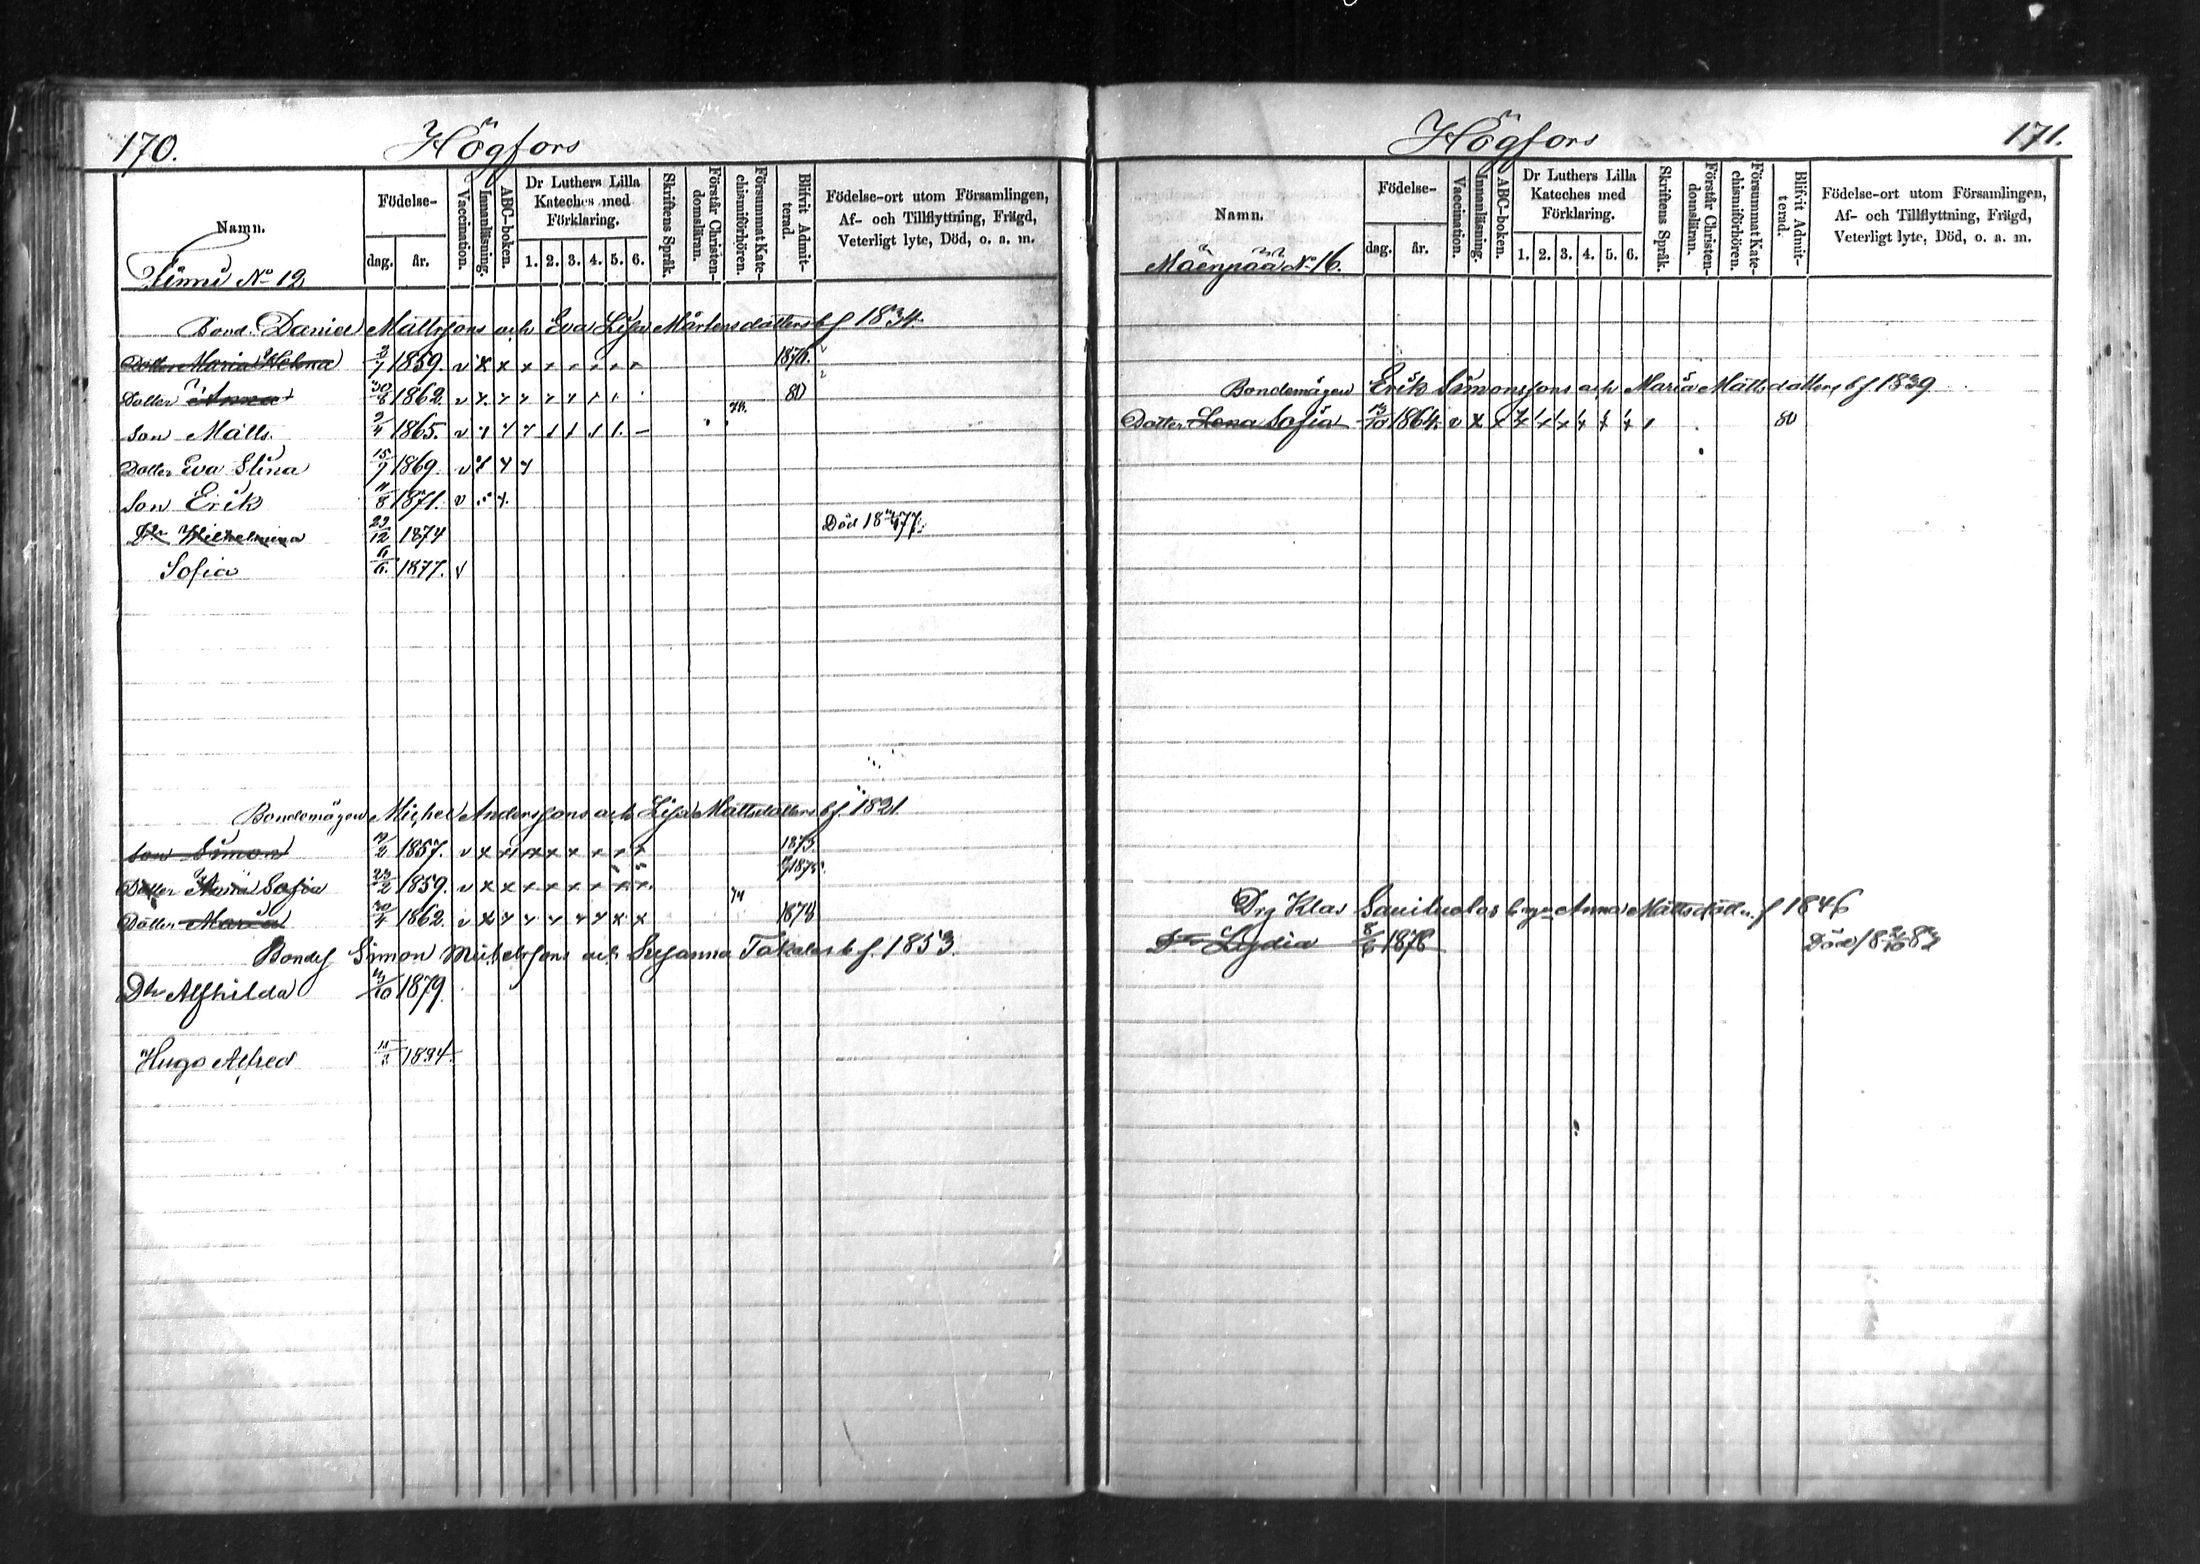 170. Högfors
Namn. Födelse- dag. år. Vaccination. Innanläsning. ABC-boken. Dr Luthers Lilla Kateches med Förklaring. 1. 2. 3. 4. 5. 6. Skriftens Språk. Förstår Christendomsläran. Försummat Katechismiförhören. Blifvit Admitterad. Födelse-ort utom Församlingen, Af- och Tillflyttning, Frägd, Veterligt lyte, Död, o. a. m.
No 12
Bond. Daniel Mattssons och Eva Lisa Mårtensdotters bf 1834.
Dotter Maria Helena 2/7 1859. v x x x
Dotter Anna 30/6 1862. v 80
Son Matts. 2/4 1865. v 78.
Dotter Eva Stina 15/7 1869. v
Son Erik 11/8 1871. v
Dr Wilhelmina 22/12 1874 Död 18 77.
Sofia 6/6. 1877.
Bondemågen Michel Anderssons och Lisa Mattsdotters bf. 1821.
Son Simon 1857. v x 1873.
Dotter Maria Sofia 23/2 1859. v x x x x x 1875.
Dotter Maria 30/4 1862. v x 1878
Bondes Simon Michelssons och Susanna Takalas bf. 1853.
Dtr Alfhilda 1879.
Hugo Alfred 1884.
Högfors 171.
Namn. Födelse- dag. år. Vaccination. Innanläsning. ABC-boken. Dr Luthers Lilla Kateches med Förklaring. 1. 2. 3. 4. 5. 6. Skriftens Språk. Förstår Christendomsläran. Försummat Katechismiförhören. Blifvit Admitterad. Födelse-ort utom Församlingen, Af- och Tillflyttning, Frägd, Veterligt lyte, Död, o. a. m.
Mäenpää No 16.
Bondemågen Erik Simonssons och Maria Matts dotters bf. 1839
Dotter Lena Sofia 13/10 1864. v x 80
Drg Klas Anna Mattsdott. f 1846
Dr Lydia 8/6 1878 Död